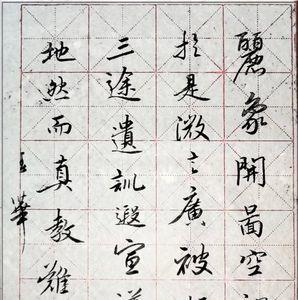 麗象開圖空
扵是微言廣被
三途遺訓遐宣
地然而真教難
王華